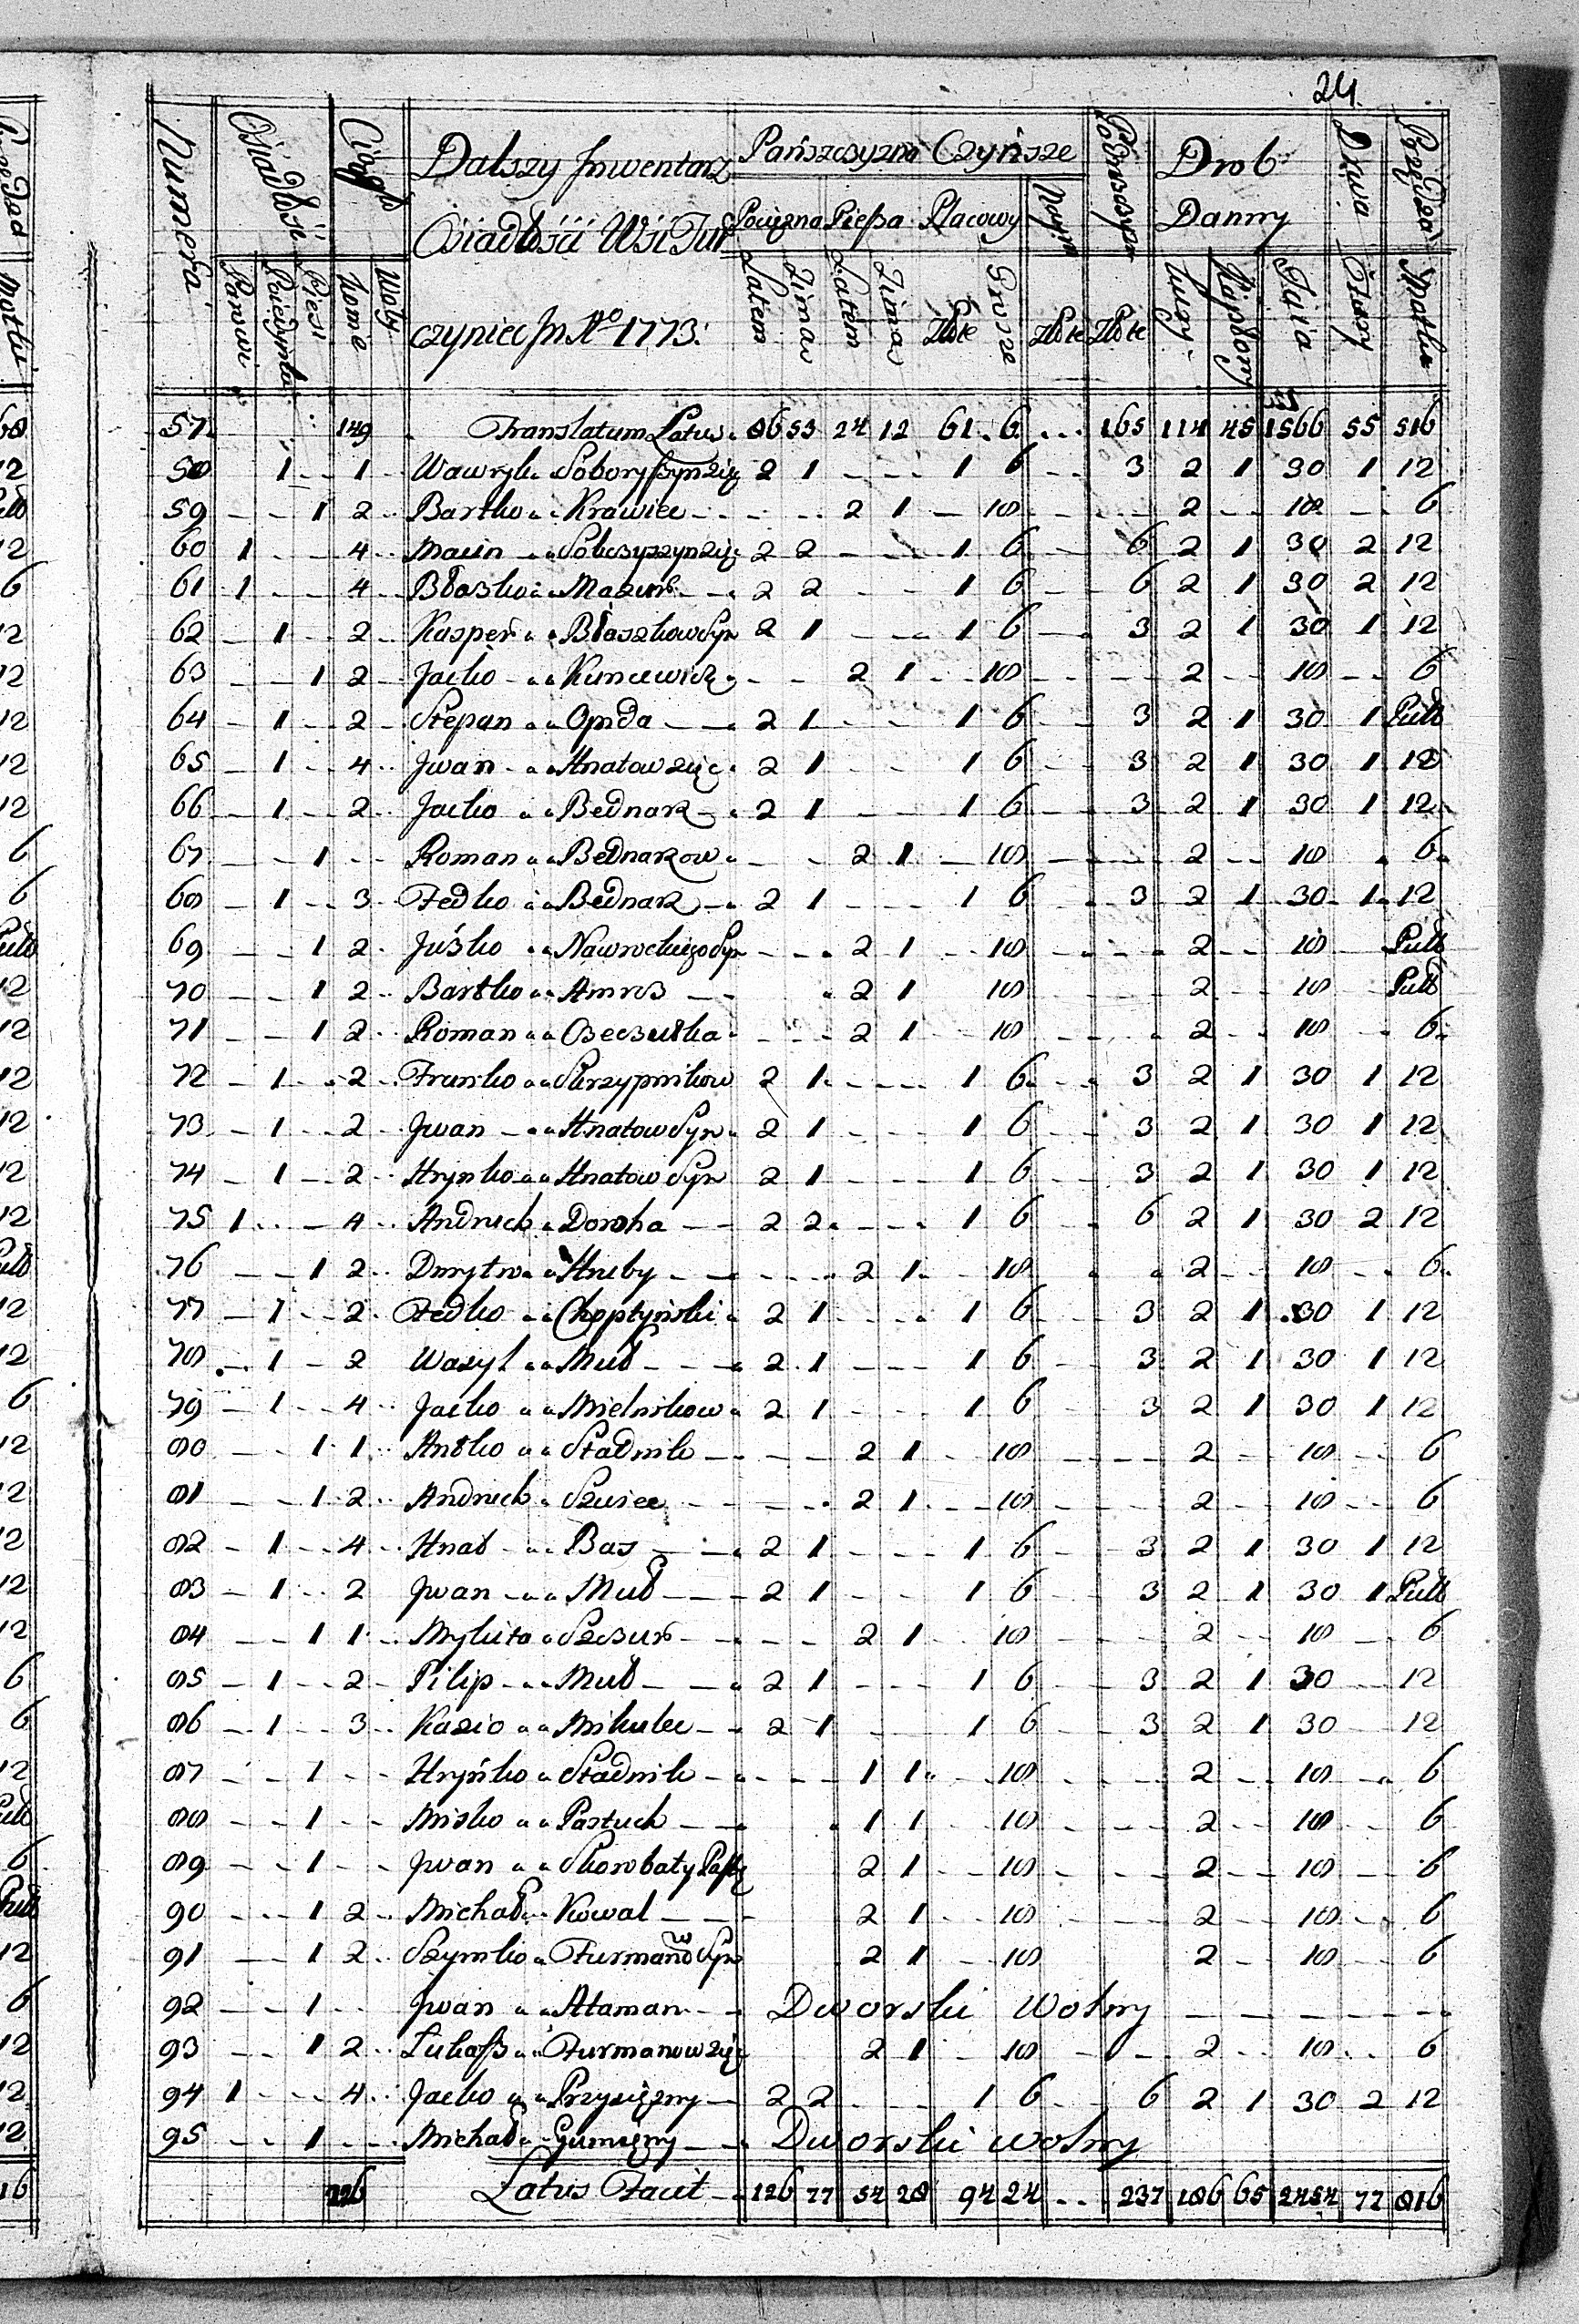 24.
Numera Osiadłość Ciągłe Dalszy Inwentarz Pańszczyzna Czynsze Podroszczyzn Drob Drwa Przędza
Osiadłości Wsi Tur Pociężna Piesza Płacowy Danny
Parowi Poiedynko Piesi Konie Woły czyniec In Ao 1773. Latem Zimą Latem Zimą Złote Grosze Złote Złote Kury Kapłony Jaia Motki
57. 149 Translatum Latus 86 53 24 12 61 6 165 114 45 1566 55 516
58 1 1 Wawryk 2 1 1 6 3 2 1 30 1 12
59 1 2 Bartko Krawiec 2 1 18 2 18 6
60 1 4 Macin 2 2 1 6 6 2 1 30 2 12
61 1 4 Błaszko Mazur 2 2 1 6 6 2 1 30 2 12
62 1 2 Kasper Błaszkow Syn 2 1 1 6 3 2 1 30 1 12
63 1 2 Jacko Kuncewicz 2 1 18 2 18 6
64 1 2 Stepan Opyda 2 1 1 6 3 2 1 30 1 Pułt
65 1 4 Jwan Hnatow zięc 2 1 1 6 3 2 1 30 1 12
66 1 2 Jacko Bednarz 2 1 1 6 3 2 1 30 1 12
67 1 Roman Bednarzow 2 1 18 2 18 6
68 1 3 Fedko Bednarz 2 1 1 6 3 2 1 30 1 12
69 1 2 Juśko Nawrockiego Syn 2 1 18 2 18 Pułt
70 1 2 Bartko 2 1 18 2 18 Pułt
71 1 2 Roman 2 1 18 2 18 6
72 1 2 Franko Skrzypnikow 2 1 1 6 3 2 1 30 1 12
73 1 2 Jwan Hnatow Syn 2 1 1 6 3 2 1 30 1 12
74 1 2 Hryńko Hnatow Syn 2 1 1 6 3 2 1 30 1 12
75 1 4 Andruch Doroha 2 2 1 6 6 2 1 30 2 12
76 1 2 Dmytro Hruby 2 1 18 2 18 6
77 1 2 Fedko Choptyński 2 1 1 6 3 2 1 30 1 12
78 1 2 Wasyl Muł 2 1 1 6 3 2 1 30 1 12
79 1 4 Jacko Mielnikow 2 1 1 6 3 2 1 30 1 12
80 1 1 Antko Stadnik 2 1 18 2 18 6
81 1 2 Andruch Szwiec 2 1 18 2 18 6
82 1 4 Hnat Bas 2 1 1 6 3 2 1 30 1 12
83 1 2 Jwan Muł 2 1 1 6 3 2 1 30 1 Pułt
84 1 1 Mykita Szczur 2 1 18 2 18 6
85 1 2 Filip Muł 2 1 1 6 3 2 1 30 12
86 1 3 Kazio Mikulec 2 1 1 6 3 2 1 30 12
87 1 Hryńko Stadnik 1 1 18 2 18 6
88 1 Misko Pastuch 1 1 18 2 18 6
89 1 Jwan Skorbaty 2 1 18 2 18 6
90 1 2 Michał Kowal 2 1 18 2 18 6
91 1 2 Szymko Furmanow Syn 2 1 18 2 18 6
92 1 Jwan Ataman Dworski Wolny
93 1 2 Lukasz Furmanow zięc 2 1 18 2 18 6
94 1 4 Jacko Przysiężny 2 2 1 6 6 2 1 30 2 12
95 1 Michał Gumięny Dworski wolny
226 Latus Facit 126 77 54 28 94 24 237 186 65 2454 77 816